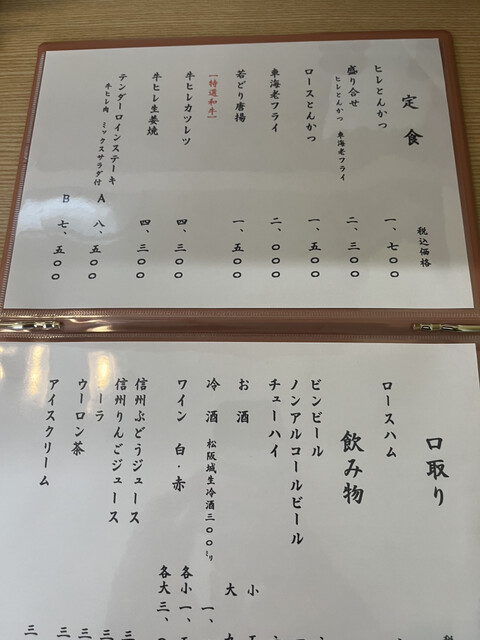 定食
税込価格
ヒレとんかつ 一、七〇〇
盛り合せ 二、三〇〇
ヒレとんかつ 車海老フライ
ロースとんかつ 一、五〇〇
車海老フライ 二、〇〇〇
若どり唐揚 一、五〇〇
【特選和牛】
牛ヒレカツレツ 四、三〇〇
牛ヒレ生姜焼 四、三〇〇
テンダーロインステーキ A 八、五〇〇
牛ヒレ肉 ミックスサラダ付 B 七、五〇〇
口取り
ロースハム
飲み物
ビンビール
ノンアルコールビール
チューハイ
お酒 小
大
冷酒 松阪城生冷酒三〇〇㍉㍑ 一、
ワイン 白・赤 各小 一、
各大 三、
信州ぶどうジュース 三
信州りんごジュース 三
コーラ 三
ウーロン茶 三
アイスクリーム 三